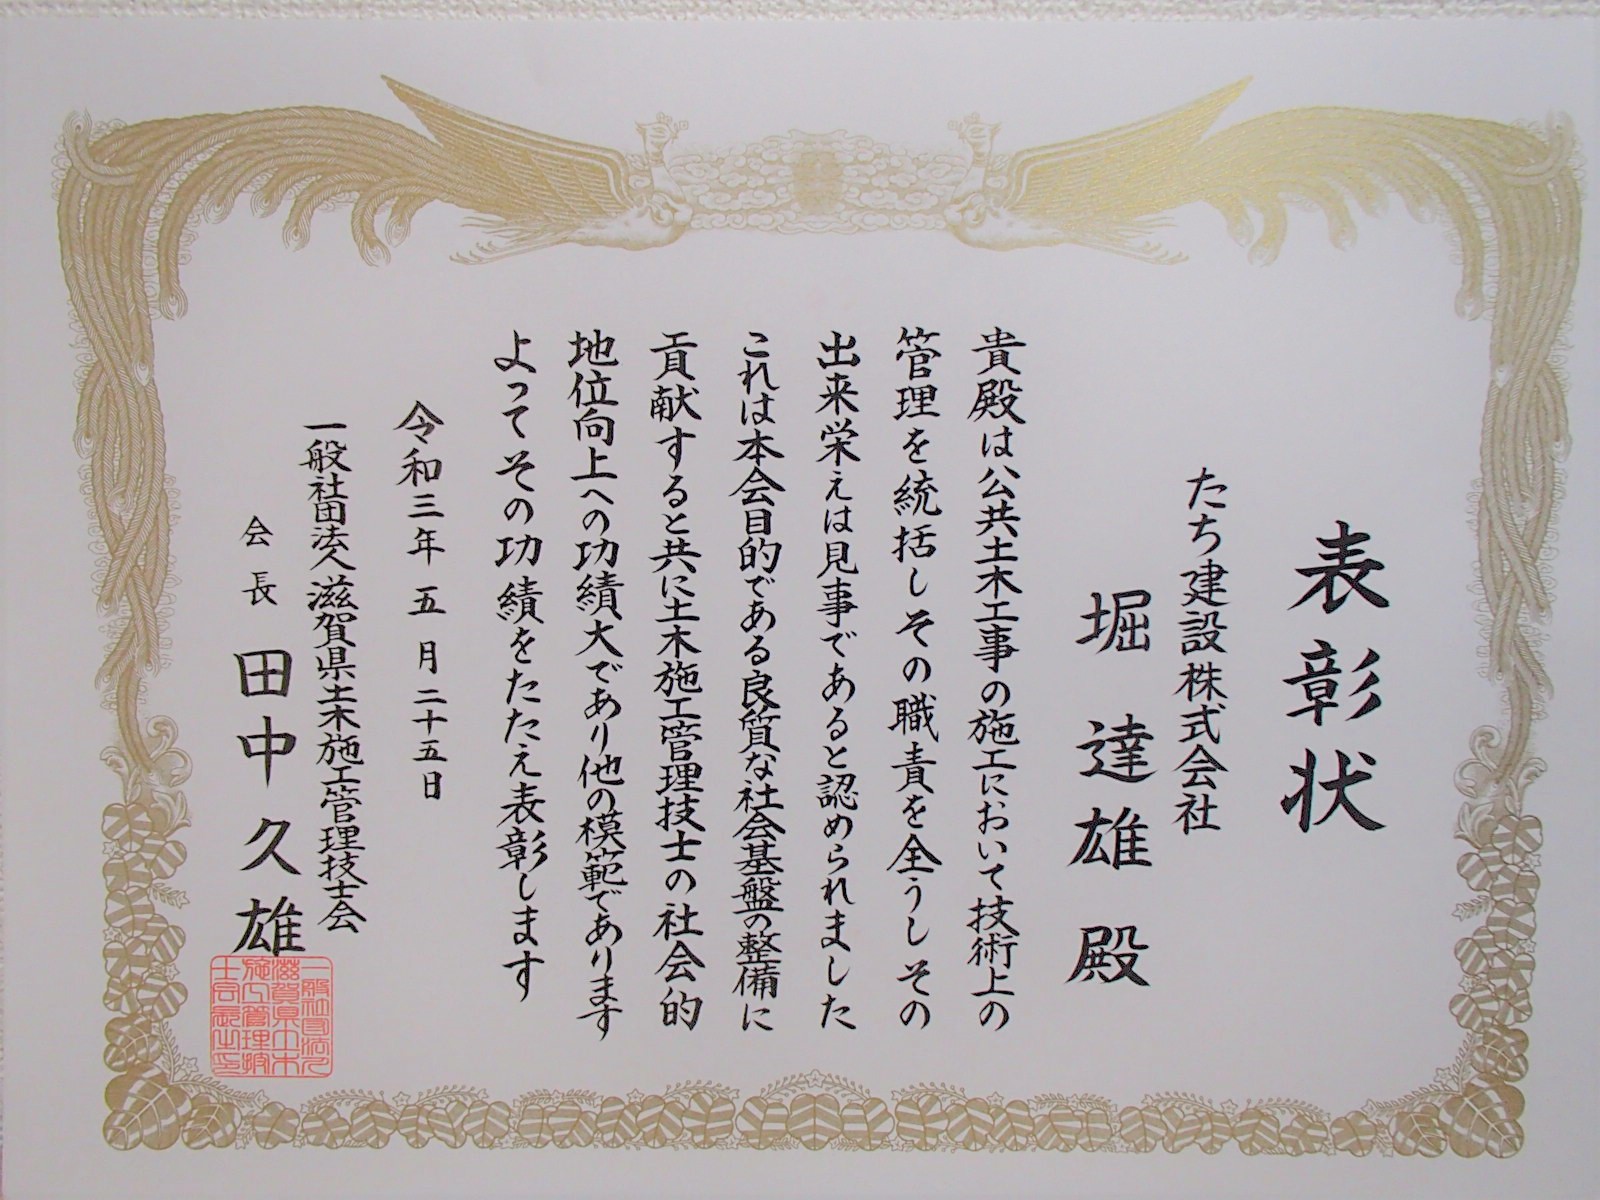 表彰状
たち建設株式会社
堀達雄殿
貴殿は公共土木工事の施工において技術上の
管理を統括しその職責を全うしその
出来栄えは見事であると認められました
これは本会目的である良質な社会基盤の整備に
貢献すると共に土木施工管理技士の社会的
地位向上への功績大であり他の模範であります
よってその功績をたたえ表彰します
令和三年五月二十五日
一般社団法人滋賀県土木施工管理技士会
会長田中久雄
一般社団法人
滋賀県土木
施工管理技
士会長之印